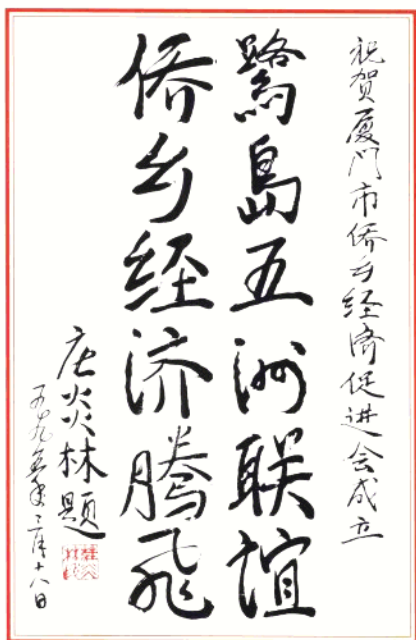 祝贺厦门市侨乡经济促进会成立
鹭岛五洲联谊
侨乡经济腾飞
庄炎林题
一九九五年三月十八日